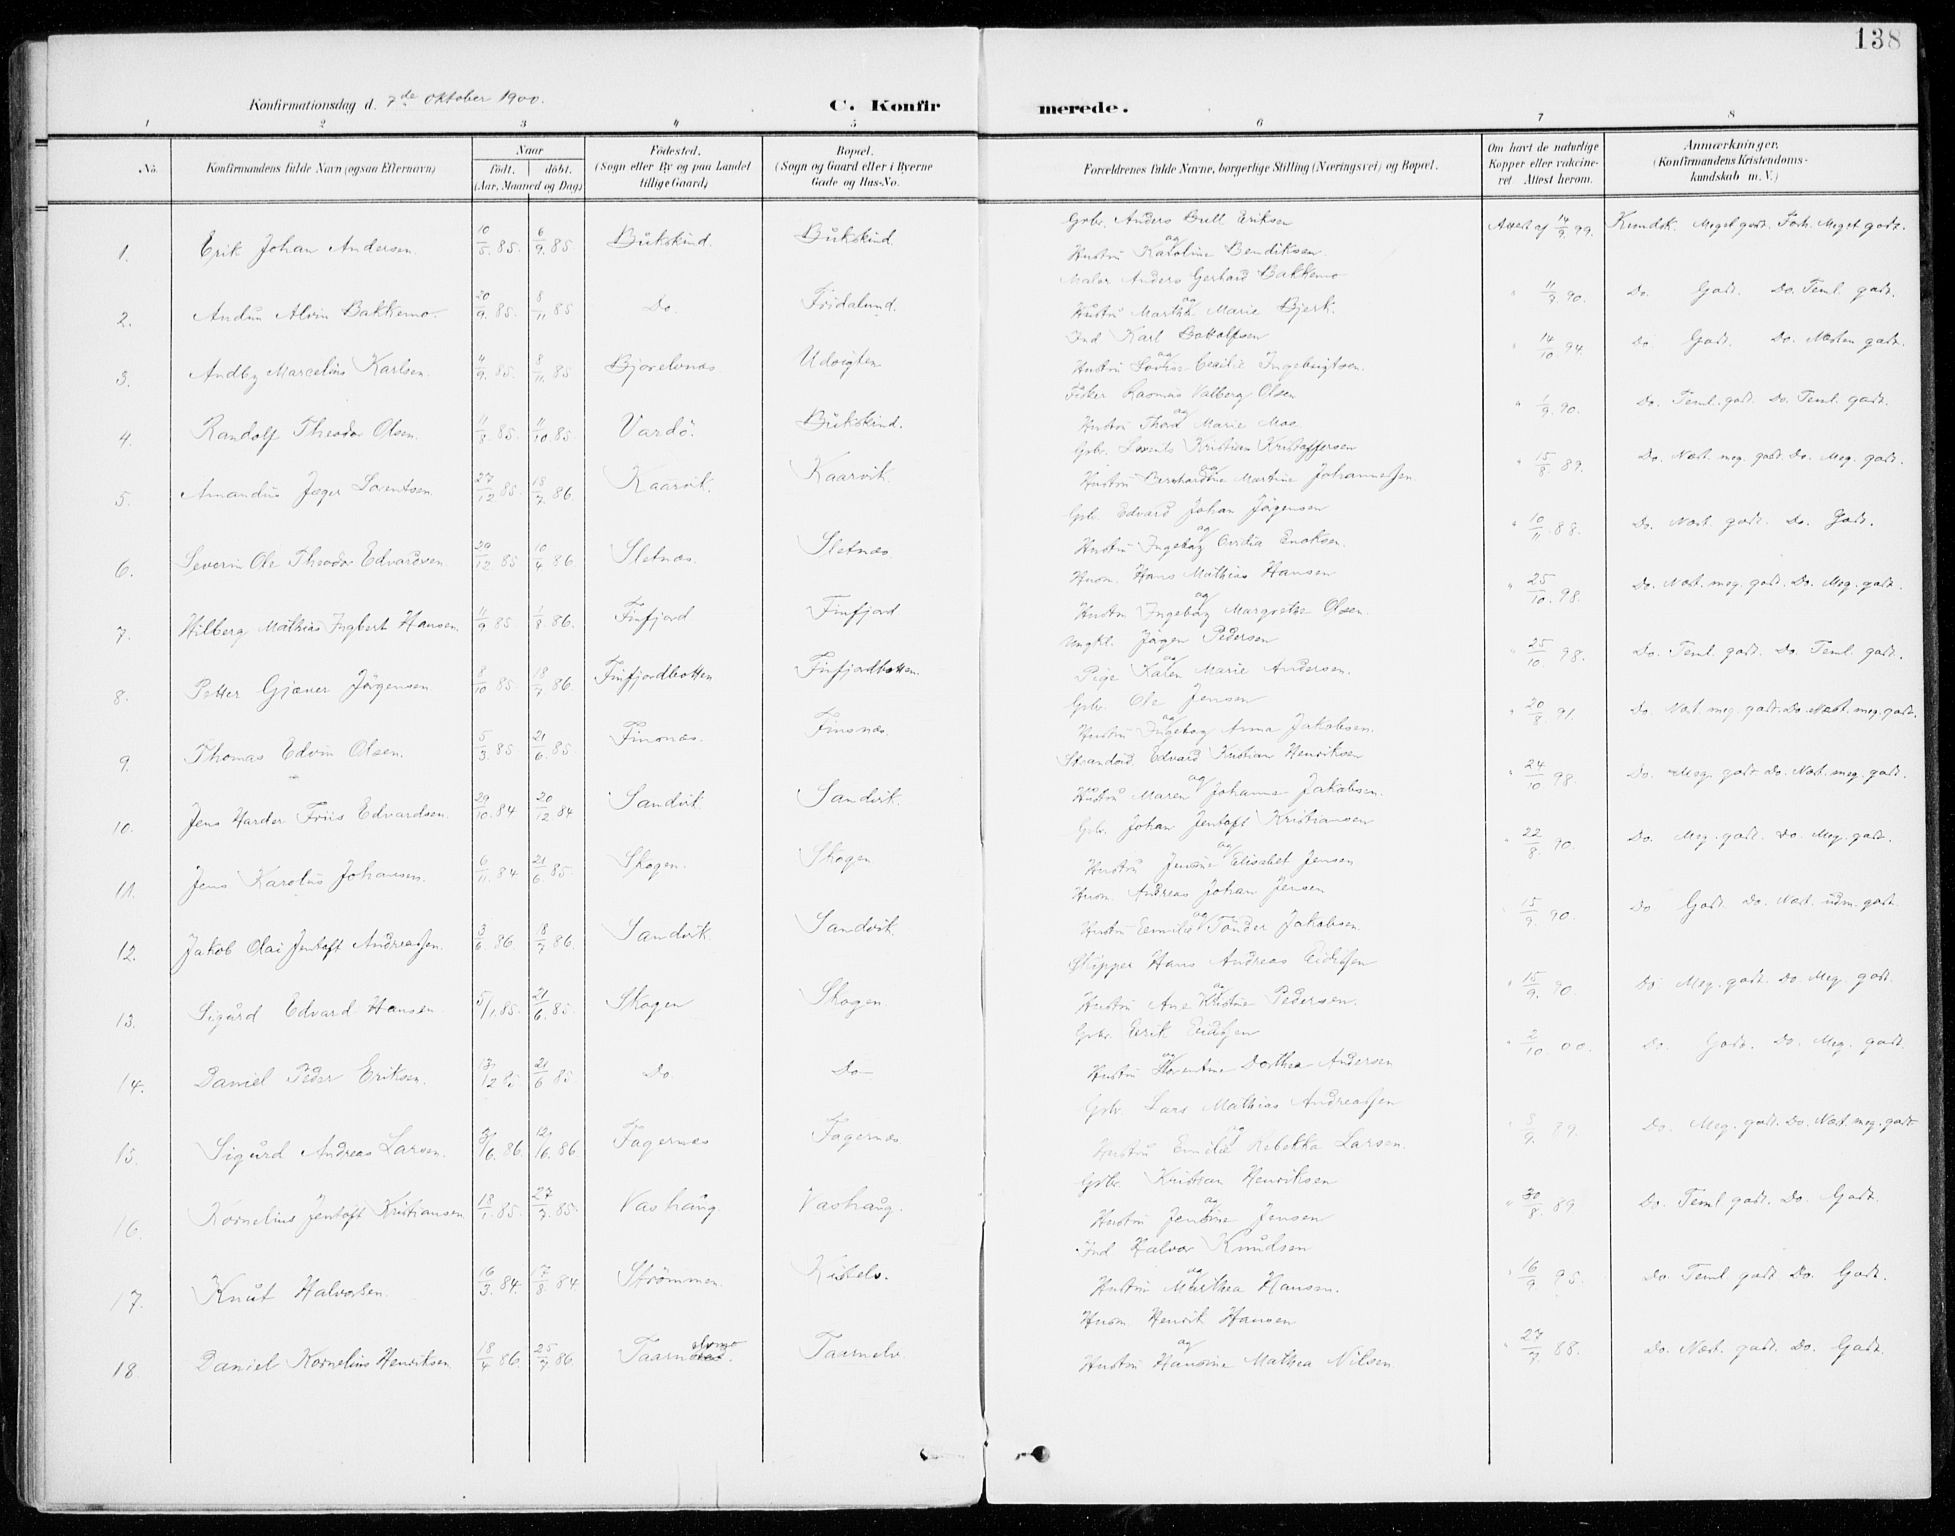 138
Konfirmationsdag d. 7de Oktober 1900.
C. Konfirmerede.
1 2 3 4 5 6 7 8
No. Konfirmandens fulde Navn (ogsaa Efternavn) Naar födt. döbt. (Aar, Maaned og Dag) Födested. (Sogn eller By og paa Landet tillige Gaard) Bopæl. (Sogn og Gaard eller i Byerne Gade og Hus-No. Forældrenes fulde Navne, borgerlige Stilling (Næringsvei) og Bopæl. Om havt de naturlige Kopper eller vakcineret. Attest herom. Anmærkninger. (Konfirmandens Kristendomskundskab m. V.)
Gbr. Anders Bull Eriksen
1. Erik Johan Andersen 10/5.85 6/9.85 Bukskind. Bukskind og Hustru Karoline Bendiksen Attest af 14/9 99. Kundsk. Meget godt. Forh. Meget godt.
Maler Anders Gerhard Bakkemo
2. Alvin Bakkemo 20/9.85. 8/11 85 Do. Fridalund. og Hustru Martha Marie Bjerk. " 11/9 90. Do. Godt. Do. Teml. godt.
Ind Karl
3. Andby Marcelius Karlsen. 11/9.85. 8/11 85 Bjorelvnæs Udsigten og Hustru Cecilie Ingebrigtsen. " 14/10 94. Do Godt. Do. Næsten godt.
Fisker Rasmus Valberg Olsen
4. Randolf Theodor Olsen. 11/8.85. 11/10.85. Vardö. Bukskind. og Hustru Thora Marie Moe " 1/9.90. Do. Teml. godt. Do. Teml. godt.
Gbr. Lorents Kristian Kristoffersen
5. Amandus Jæger Lorentsen. 27/12 85. 18/7.86. Kaarvik. Kaarvik. og Hustru Berhardine Martine Johannessen. " 15/8.89. Do. Næst. meg. godt. Do. Meg. godt.
Gbr. Edvard Johan Jörgensen
6. Severin Ole Theodor Edvardsen. 12 85 10/4 86. Sletnæs. Sletnæs og Hustru Ingebog Enoksen. " 10/11.88. Do. Næst. godt. Do. Godt.
Husm. Hans Mathias Hansen
7. Hilberg Mathias Ingbert Hansen. 11/9 85 1/8.86. Finfjord Finfjord og Hustru Ingebog Margrethe Olsen. " 25/10.98. Do. Næst. meg. godt. Do. Meg. godt.
Ungkl. Jörgen Pedersen
8. Petter Gjæver Jörgensen 8/10.85. 18/7 86. Finfjordbotten Finfjordbotten. og Pige Karen Marie Andersen. " 25/10 98. Do. Teml. godt. Do Teml. godt.
Gbr. Ole Jensen
9. Thomas Edvin Olsen. 5/3.85 21/6.85. Finsnæs. Finsnæs og Hustru Ingebog Anna Jakobsen. " 20/8 91. Do. Næst. meg. godt. Do. Næst. meg. godt.
Strandsid. Edvard Kristian Henriksen
10. Jens Harder Friis Edvardsen. 29/10.84 20/12 84 Sandvik Sandvik. og Hustru Maren Johanna Jakobsen. " 24/10 98. Do. Meg. godt Do. Næst. meg. godt.
Gbr. Johan Jentoft Kristiansen
11. Jens Karolus Johansen. 6/11.84 21/6.85. Skogen. Skogen og Hustru Jensine Elisabet Jensen " 22/8 90. Do. Meg. godt. Do. Meg. godt.
Husm. Andreas Johan Jensen
12. Jakob Olai Jentoft Andreassen. 3/6.86. 18/7 86. Sandvik. Sandvik og Hustru Emilie Tönder Jakobsen. 15/9.90. Do Godt. Do. Næst. udm. godt.
Skipper Hans Andreas Eidissen
13. Sigurd Edvard Hansen. 5/1.85. 21/6.85. Skogen Skogen. og Hustru Ane Kristine Pedersen. " 15/9.90 Do Meg. godt. Do Meg. godt.
Gbr. Erik Eidissen
14. Daniel Peder Eriksen. 12 85 21/6 85. Do. Do og Hustru Florentine Dorthea Andersen " 2/10 00. Do. Godt. Do. Meg. godt.
Gbr. Lars Mathias Andreassen
15. Sigurd Andreas Larsen. 3/6.86. 12/6 86. Fagernæs Fagernæs og Hustru Emilie Rebekka Larsen. " 89. Do. Meg. godt. Do. Næst. meg. godt
Gbr. Kristian Henriksen
16. Kornelius Jentoft Kristiansen. 18/1.85. 27/7.85. Vashaug Vashaug. og Hustru Jensine Jensen " 30/8 89 Do. Teml godt. Do. Godt.
Ind Halvor Knudsen
17. Knut Halvorsen. 16/3.84. 17/8.84. Strömmen. Kistelv. og Hustru Marthea Hansen. " 16/9 95. Do Teml godt. Do. Godt.
Husm Henrik Hansen
18. Daniel Kornelius Henriksen. 18/4 86. 25/7 86. Taarn elvmo Taarnelv. og Hustru Hansine Mathea Nilsen " 27/7 88. Do. Næst. godt. Do. Godt.